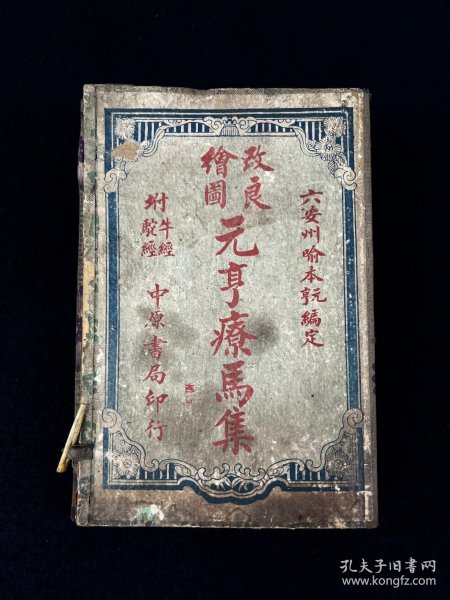 六安州喻本亨元編定
改良
繪圖
元亨療馬集
附牛經
駝經
中原書局印行
孔夫子旧書网
www.kongfz.com